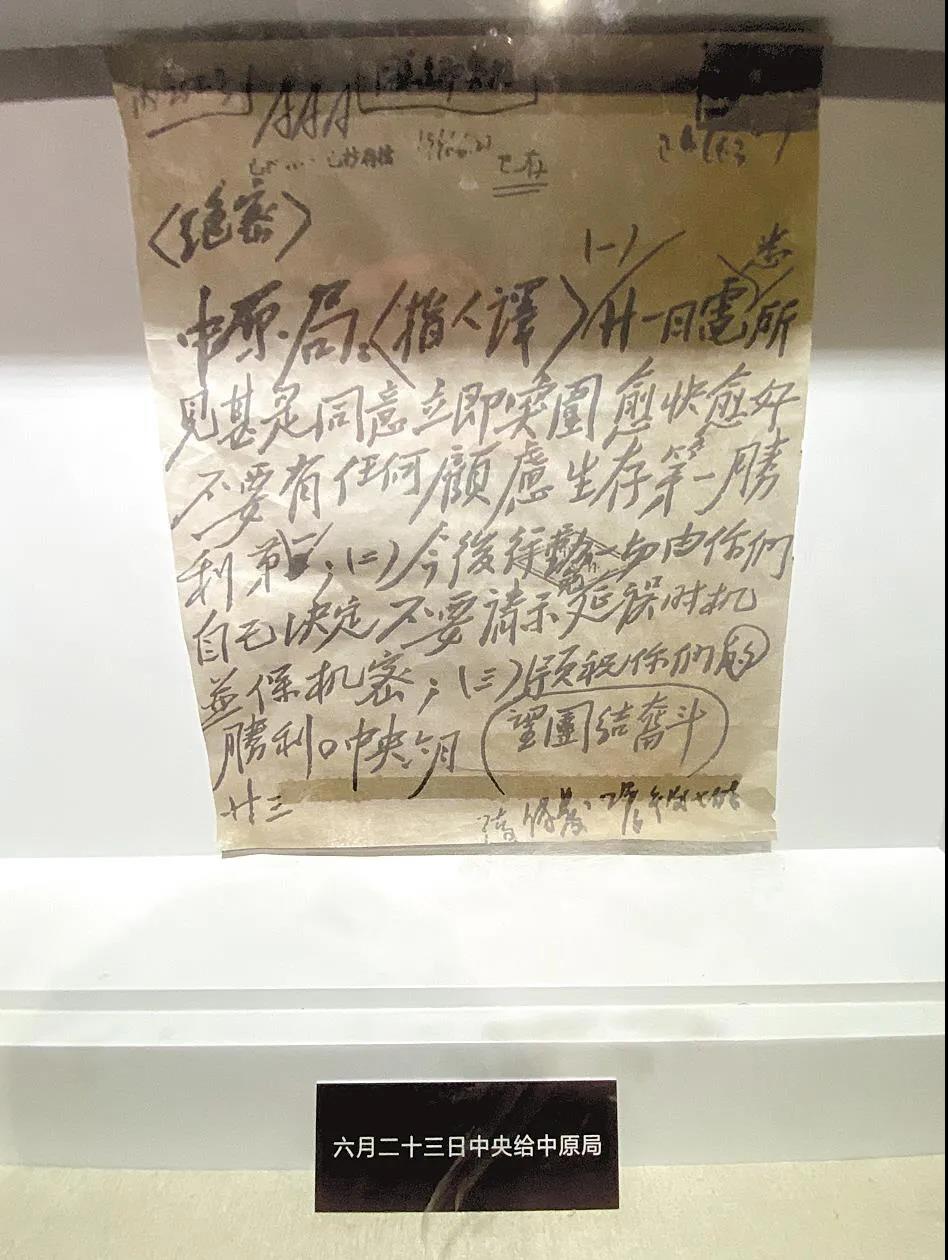 AAA
已抄存档
已存
〈絕密〉
(一) 悉
中原局:〈指人譯〉廿一日電所
見甚是同意立即突圍愈快愈好
不要有任何顧慮生存第一勝
利第一;(二)今後行動一切由你們
自己決定不要請示延誤时机
並保机密;(三)預祝你們的
勝利。中央六月
望團結奮斗
廿三
六月二十三日中央给中原局